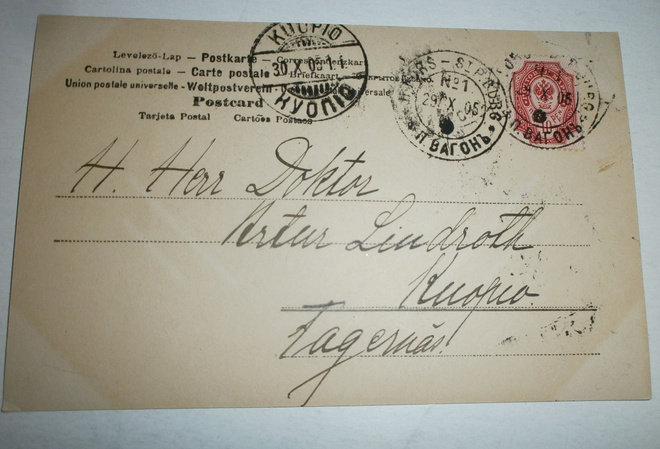 Levelező-Lap – Postkarte – Correspondenzkarte
Cartolina postale – Carte postale – Briefkaart
Union postale universelle – Weltpostverein
Postcard
Tarjeta Postal Cartões Postaes
KUOPIO
30 X 05
КУОПІО
ST. PBURG
№ 1
29 X 05
П. ВАГОНЪ
П. ВАГОНЪ
H. Herr Doktor
Artur Lindroth
Kuopio
Fagernäs.